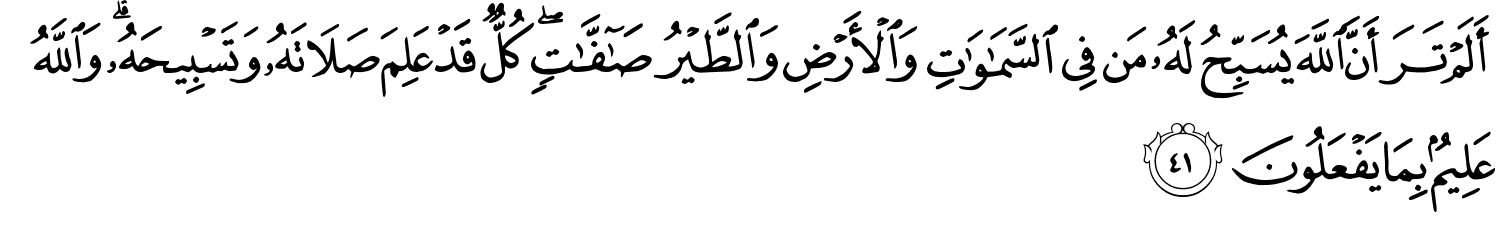 أَلَمۡ تَرَ أَنَّ ٱللَّهَ يُسَبِّحُ لَهُۥ مَن فِي ٱلسَّمَٰوَٰتِ وَٱلۡأَرۡضِ وَٱلطَّيۡرُ صَٰٓفَّٰتٖۖ كُلّٞ قَدۡ عَلِمَ صَلَاتَهُۥ وَتَسۡبِيحَهُۥۗ وَٱللَّهُ
عَلِيمُۢ بِمَا يَفۡعَلُونَ ٤١